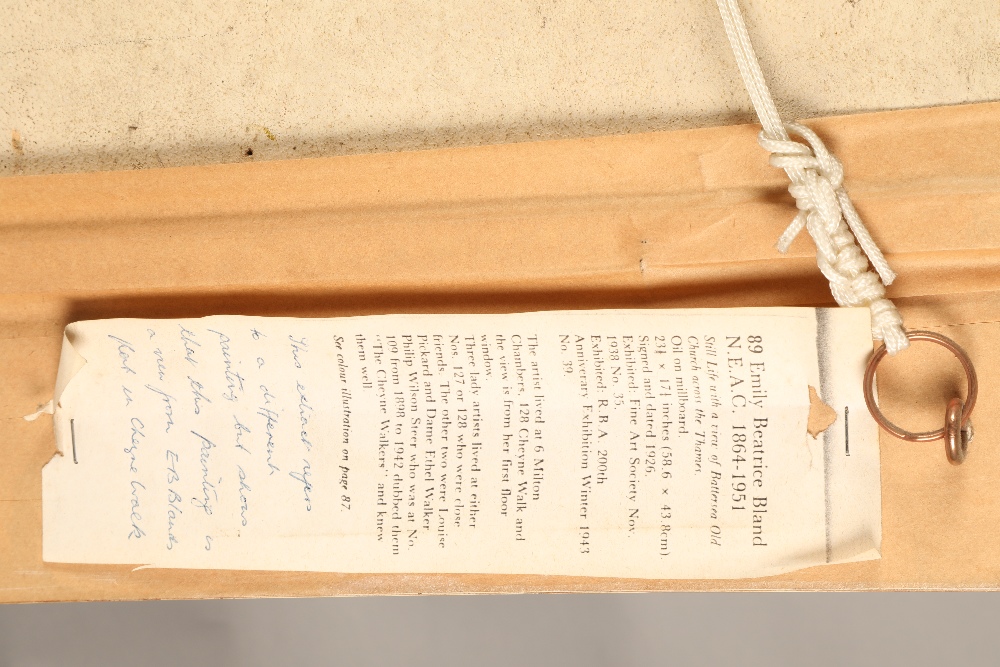 89 Emily Beatrice Bland
N.E.A.C. 1864-1951
Still Life with a view of Battersea Old
Church across the Thames.
Oil on millboard.
23⅛ × 17¼ inches (58.6 × 43.8cm).
Signed and dated 1926.
Exhibited: Fine Art Society, Nov.
1938 No. 35.
Exhibited: R.B.A. 200th
Anniverary Exhibition Winter 1943
No. 39.
The artist lived at 6 Milton
Chambers, 128 Cheyne Walk and
the view is from her first floor
window.
Three lady artists lived at either
Nos. 127 or 128 who were close
friends. The other two were Louise
Pickard and Dame Ethel Walker.
Philip Wilson Steer who was at No.
109 from 1898 to 1942 dubbed them
"The Cheyne Walkers" and knew
them well.
See colour illustration on page 87.
This extract refers
to a different
painting but shows
that this painting is
a view from E B Blands
flat in Cheyne Walk